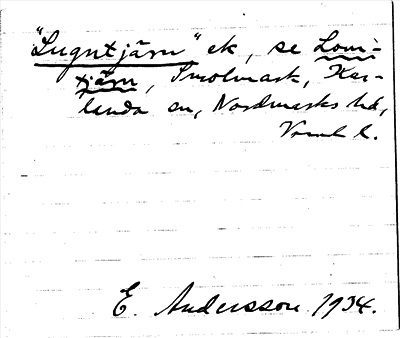 "Lugntjärn" ek, se Lom-
tjärn, Smolmark, Kar-
landa sn, Nordmarks hd,
Vrml l.
E. Andersson 1934.